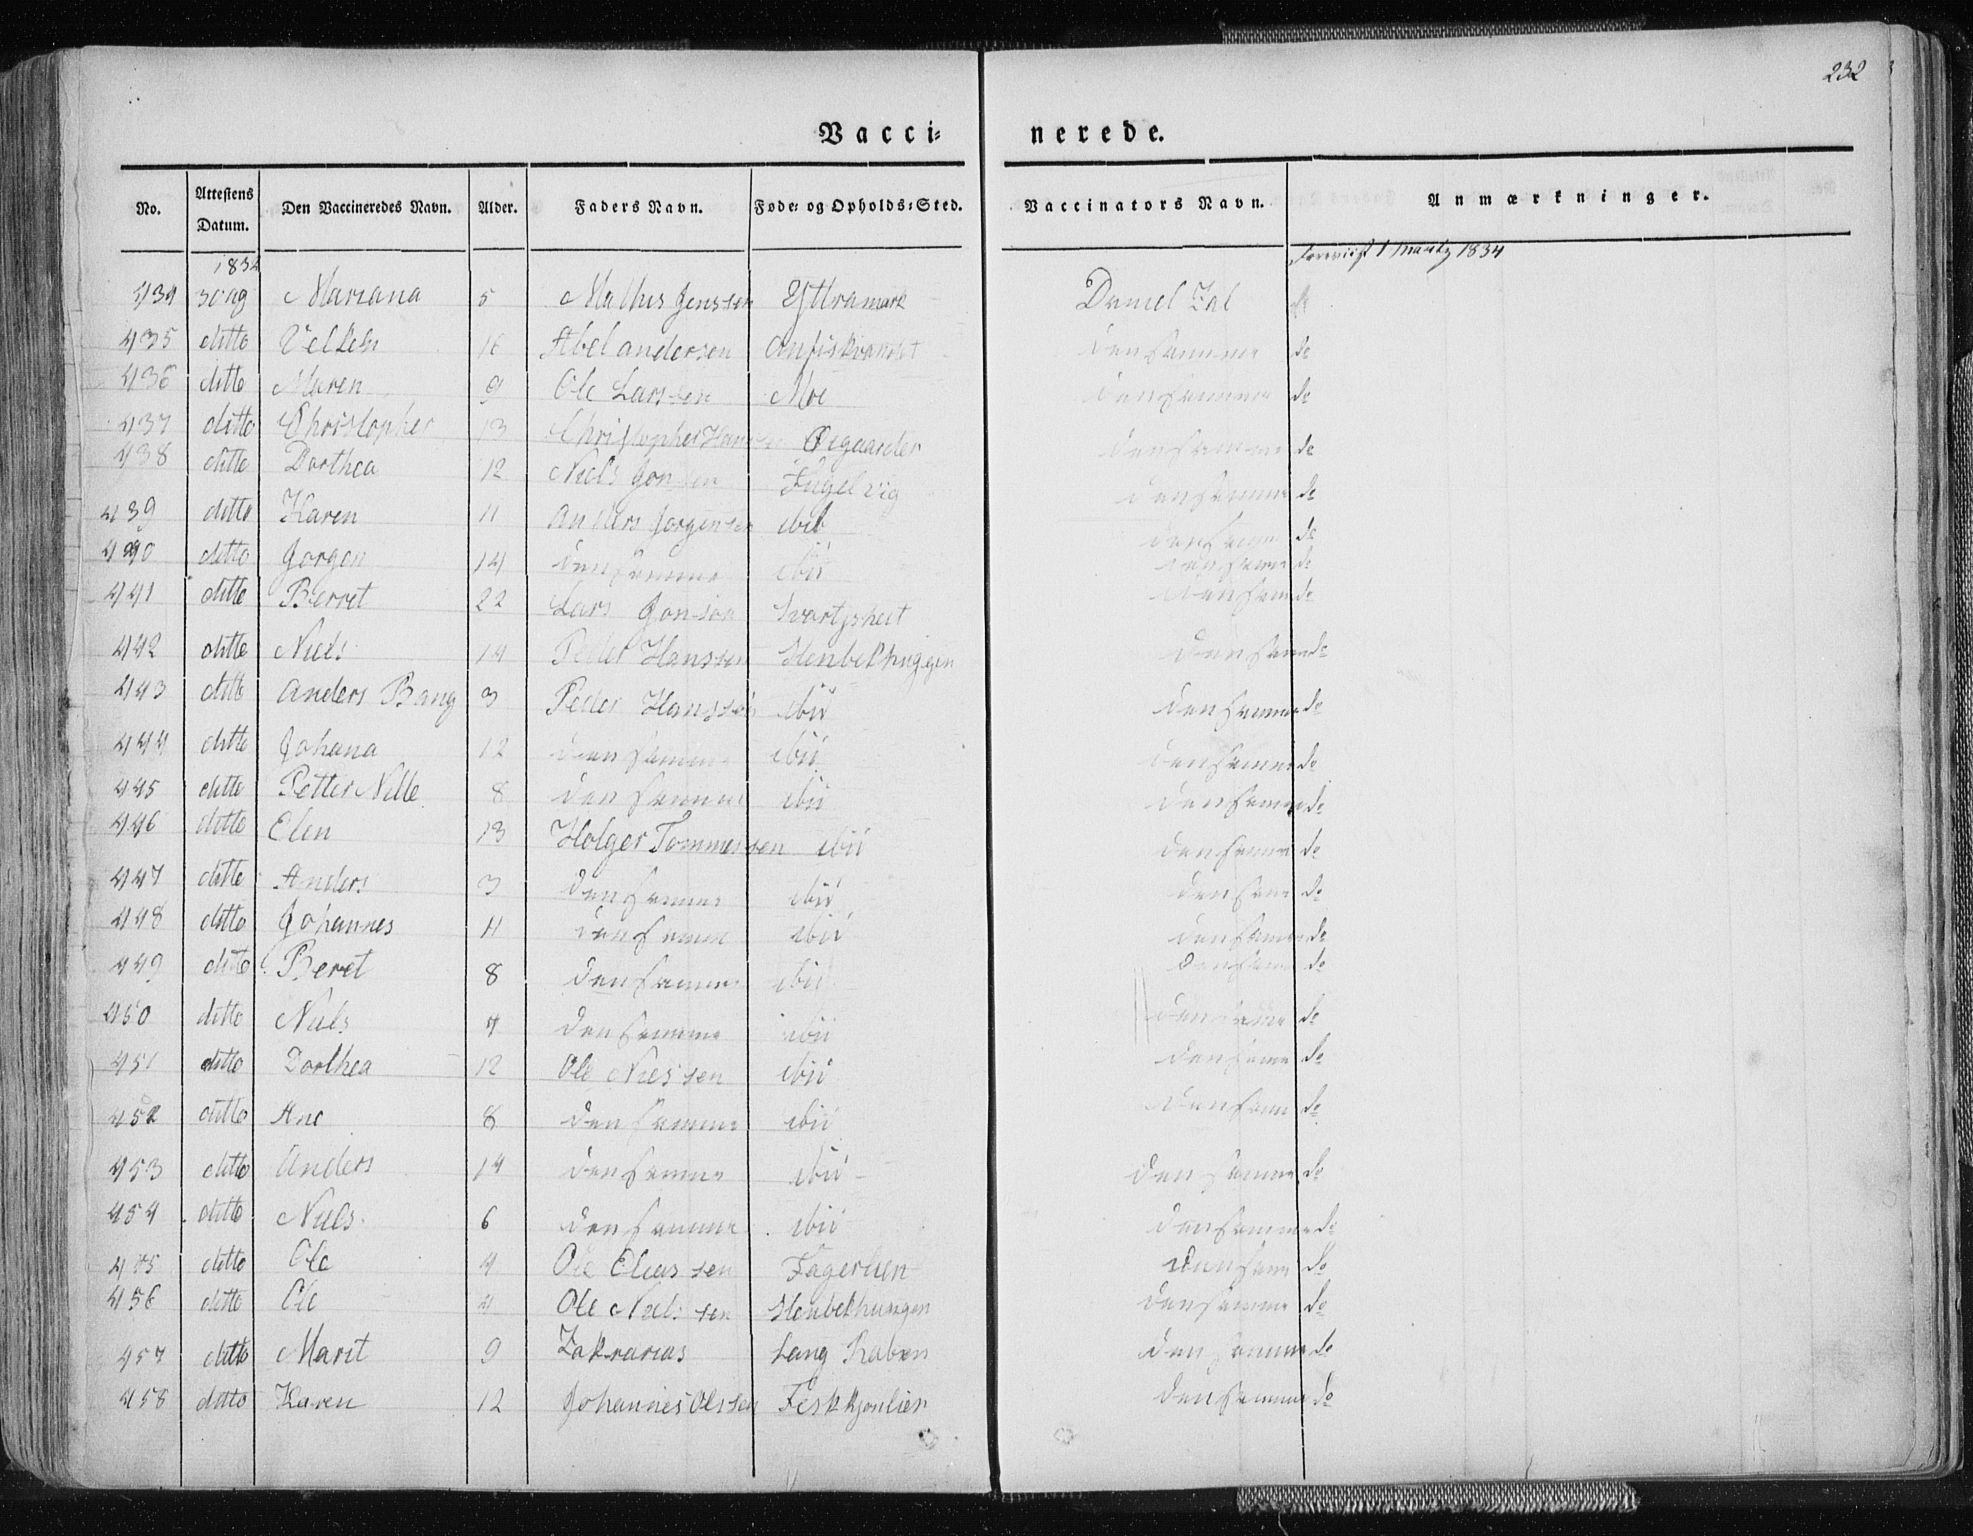 232
Vacci- nerede.
No. Attestens Datum. Den Vaccineredes Navn. Alder. Faders Navn. Føde- og Opholds-Sted. Vaccinators Navn. Anmærkninger.
1834 Foreviist 1 Martz 1834
434 30 Aug Mariana 5 Mathis Jenssen Yttramark Daniel Zal do
435 ditto 16 Abel andersen den samme do
436 ditto Maren 9 Ole Larssen Moe den samme do
437 ditto Christopher 13 Christopher Hansen Øegaarder den samme do
438 ditto Dorthea 12 Niels Jonsen Fugelvig den samme do
439 ditto Karen 11 Anders Jorgensen ibit den samme do
440 ditto Jorgen 14 den samme ibii den samme do
441 ditto Berret 22 Lars Jonson den samme do
442 ditto Niels 14 Peder Hanssen Henbekhuggen den samme do
443 ditto Anders Bang 3 Peder Hanssen ibii den samme do
444 ditto Johana 12 den samme ibii den samme do
445 ditto Petter Nille 8 den samme ibii den samme do
446 ditto Elen 13 Holger Tommessen ibii den samme do
447 ditto Anders 3 den samme ibii den same do
448 ditto Johannes 11 den samme ibii den samme do
449 ditto Beret 8 den samme ibii den same do
450 ditto Niels 4 den samme ibii den same do
451 ditto Dorthea 12 Ole Niessen ibii den same do
452 ditto Ane 8 den samme ibii den same do
453 ditto Anders 14 den samme ibii den samme do
454 ditto Niels 6 den samme ibii den samme do
455 ditto Ole 4 Ole Eliassen Fagerlien den same do
456 ditto Ole 4 Ole Nielssen Henbekhungen den samme do
457 ditto Marit 9 Zakrarias Lang Raben den samme do
458 ditto Karen 12 Johannes Olssen Feskkjonlien den samme do